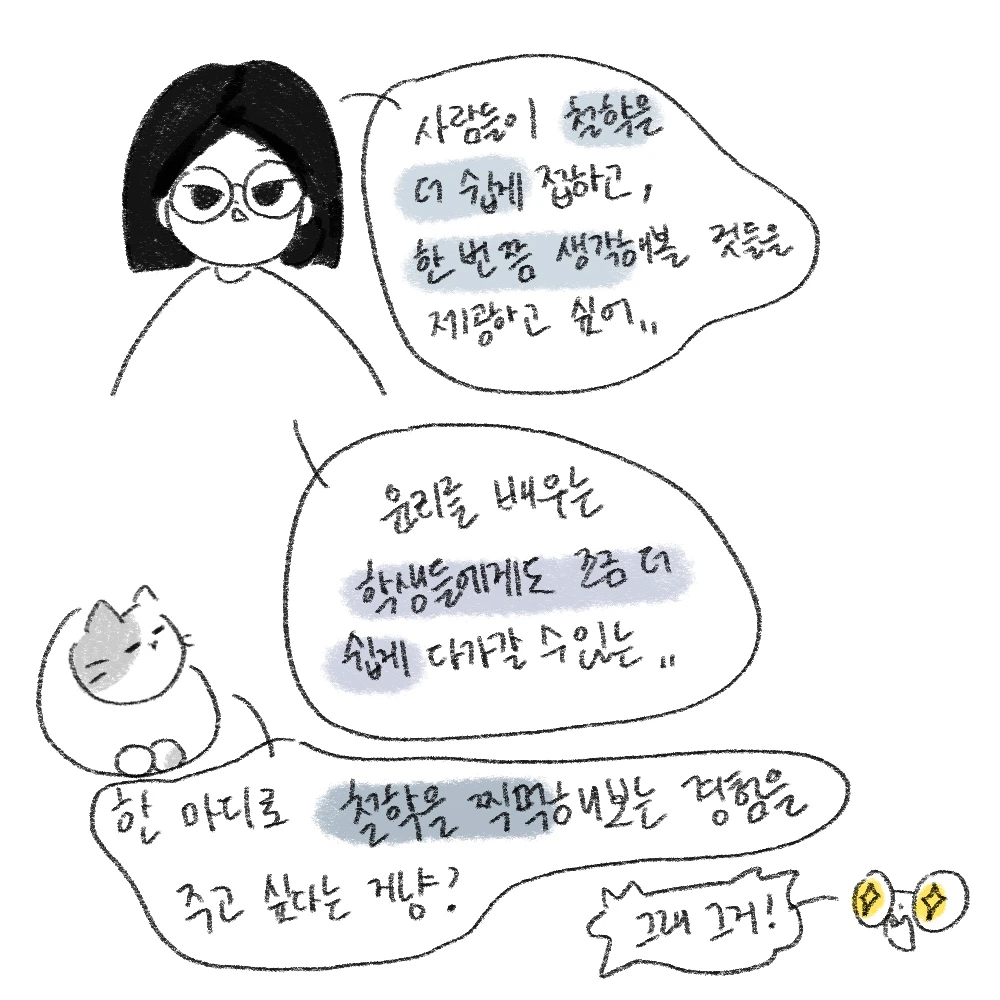 사람들이 철학을
더 쉽게 접하고,
한 번쯤 생각해볼 것들을
제공하고 싶어..
윤리를 배우는
학생들에게도 조금 더
쉽게 다가갈 수있는..
한 마디로 철학을 찍먹해보는 경험을
주고 싶다는 게냥?
그래 그거!